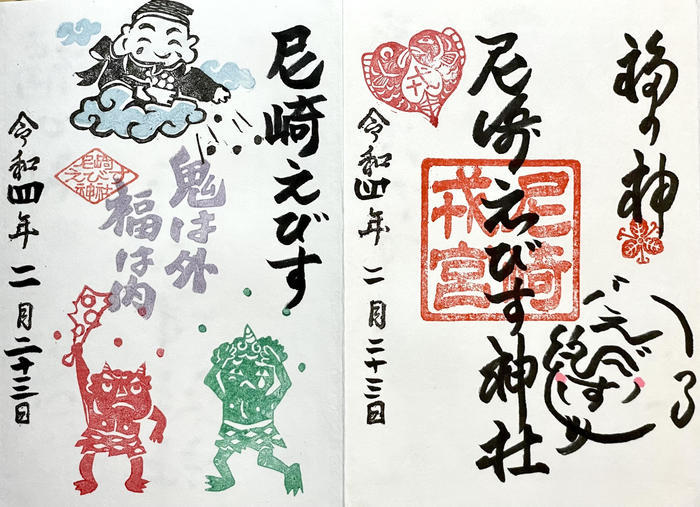 福の神
尼崎えびす神社
尼崎
戎宮
令和四年 二月二十三日
尼崎えびす
鬼は外
福は内
尼崎
えびす
神社
令和四年 二月二十三日